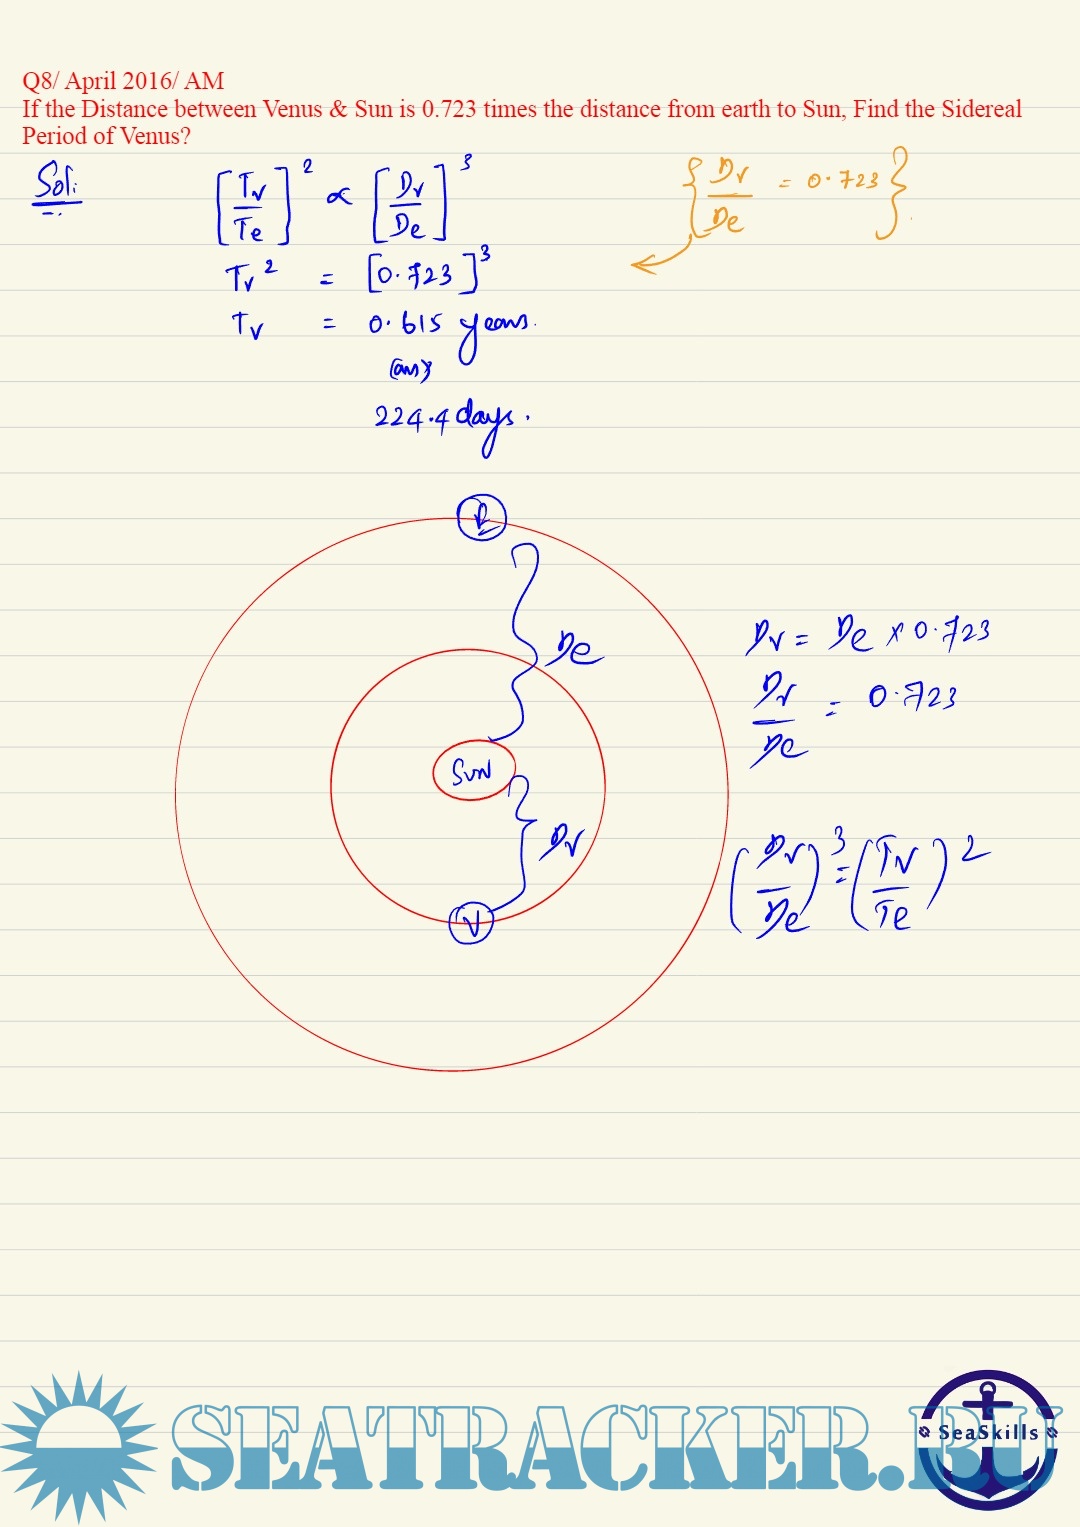 Q8/ April 2016/ AM
If the Distance between Venus & Sun is 0.723 times the distance from earth to Sun, Find the Sidereal
Period of Venus?
Sol:
[Tv/Te]² ∝ [Dv/De]³
{Dv/De = 0.723}
Tv² = [0.723]³
Tv = 0.615 years.
(ans)
224.4 days.
E
De
Dv = De × 0.723
Dv/De = 0.723
SUN
Dv
(Dv/De)³ = (Tv/Te)²
V
SEATRACKER.RU
SeaSkills